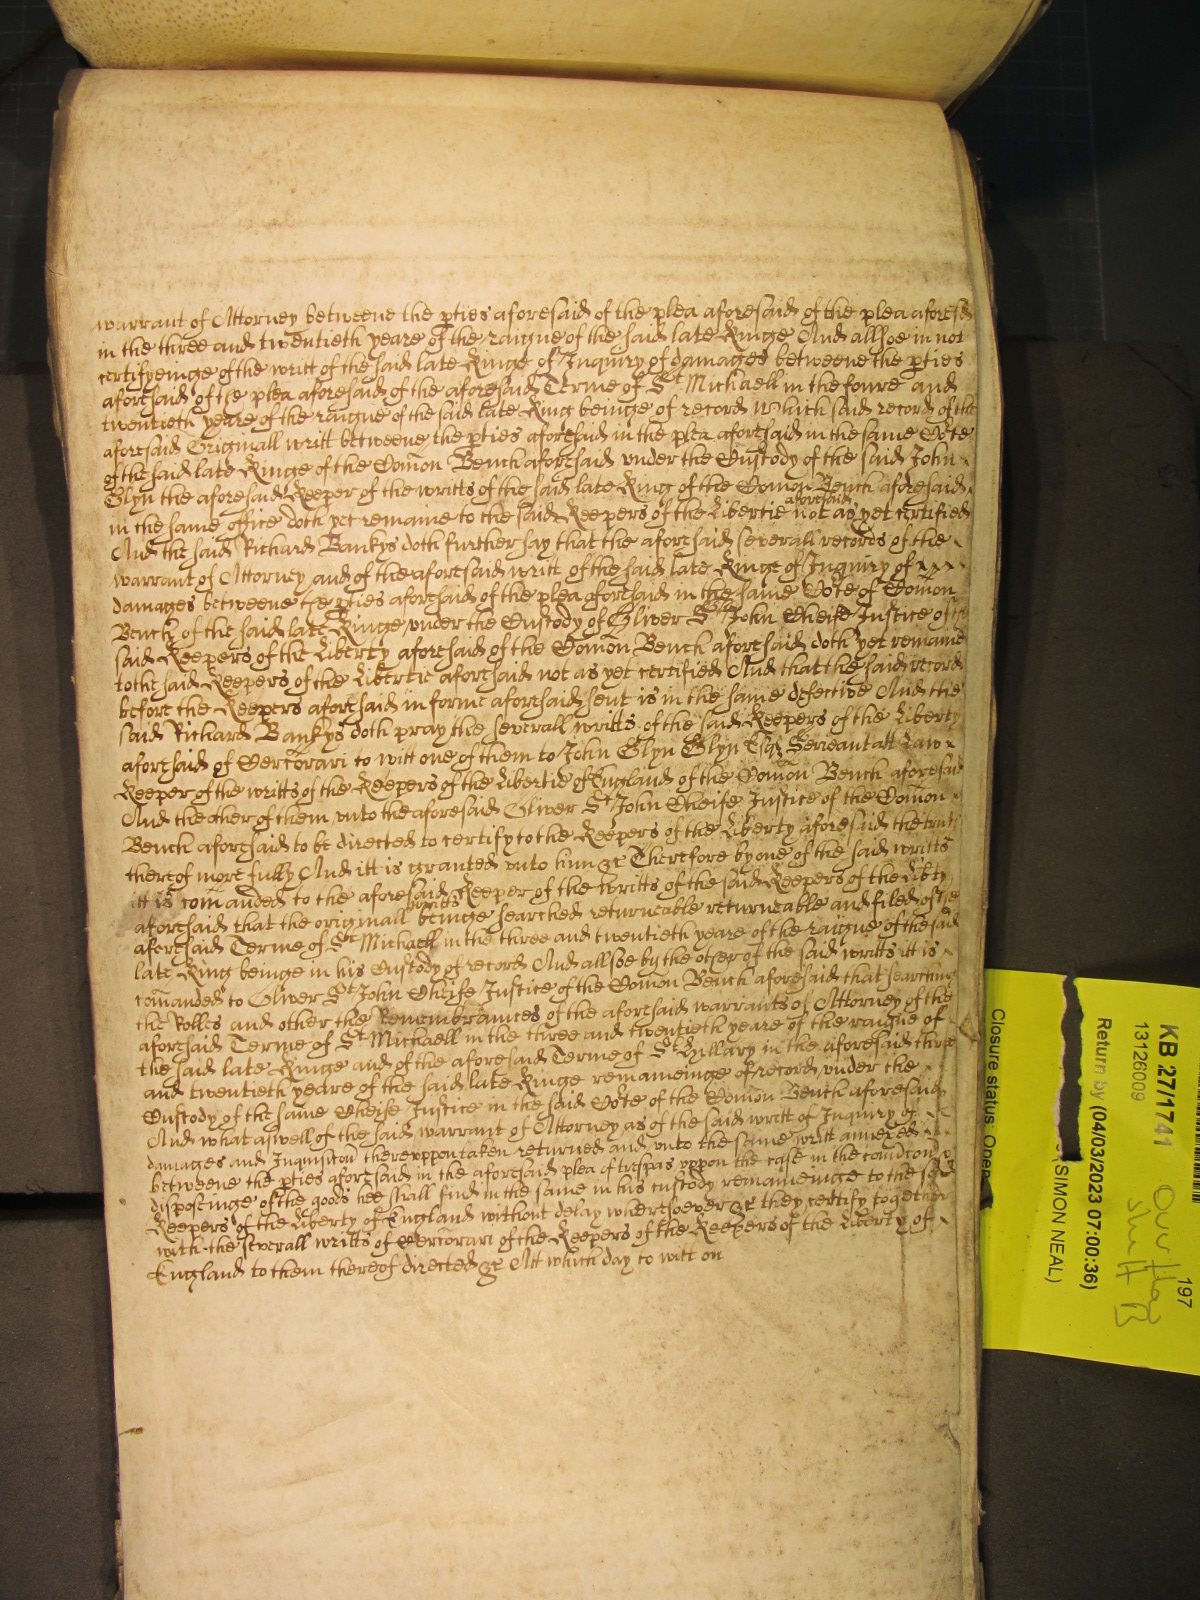 warrant of Attorney betweene the pties aforesaid of the plea aforesaid of the plea aforesd
in the three and twentieth yeare of the raigne of the said late Kinge And allsoe in not
certifyeinge of the writt of the said late Kinge of Inquiry of damages betweene the pties
aforesaid of the plea aforesaid of the aforesaid Terme of St Michaell in the foure and
twentieth yeare of the raigne of the said late King beinge of record Which said record of the
aforesaid Originall writt betweene the pties aforesaid in the plea aforesaid in the same Cote
of the said late Kinge of the Comon Bench aforesaid under the Custody of the said John
Glyn the aforesaid Keeper of the writts of the said late King of the Comon Bench aforesaid
in the same office doth yet remaine to the said Keepers of the Libertie aforesaid not as yet certified
And the said Richard Bankys doth further say that the aforesaid severall records of the
warrant of Attorney and of the aforesaid writt of the said late Kinge of Inquiry of
damages betweene the pties aforesaid of the plea aforesaid in the same Cote of Comon
Bench of the said late Kinge under the Custody of Oliver St John Cheife Justice of the
said Keepers of the Liberty aforesaid of the Comon Bench aforesaid doth yet remaine
to the said Keepers of the Libertie aforesaid not as yet certified And that the said record
before the Keepers aforesaid in forme aforesaid sent is in the same defective And the
said Richard Bankys doth pray the severall writts of the said Keepers of the Liberty
aforesaid of Certiorari to witt one of them to John Glyn Glyn Esqr Serieant att Law
Keeper of the writts of the Keepers of the Libertie of England of the Comon Bench aforesaid
And the other of them unto the aforesaid Oliver St John Cheife Justice of the Comon
Bench aforesaid to be directed to certify to the Keepers of the Liberty aforesaid the truth
thereof more fully And itt is granted unto him &c Therefore by one of the said writts
itt is comanded to the aforesaid Keeper of the writts of the said Keepers of the Libty
aforesaid that the originall writts beinge searched returneable returneable and filed of the
aforesaid Terme of St Michaell in the three and twentieth yeare of the raigne of the said
late King beinge in his Custody of record And allsoe by the other of the said writts itt is
comanded to Oliver St John Cheife Justice of the Comon Bench aforesaid that searching
the Rolles and other the Remembrances of the aforesaid warrants of Attorney of the
aforesaid Terme of St Michaell in the three and twentieth yeare of the raigne of
the said late Kinge and of the aforesaid Terme of St Hillary in the aforesaid three
and twentieth yeare of the said late Kinge remaineinge of record under the
Custody of the same Cheife Justice in the said Cote of the Comon Bench aforesaid
And what aswell of the said warrant of Attorney as of the said writt of Inquiry of
damages and Inquisicon thereuppon taken returned and unto the same writt annexed
betweene the pties aforesaid in the aforesaid plea of trespas uppon the case in the
disposeinge of the goods hee shall find in the same in his custody remaineinge to the said
Keepers of the Liberty of England without delay wheresoever &c they certify together
with the severall writts of Certiorari of the Keepers of the Keepers of the Liberty of
England to them thereof directed &c Att which day to witt on
KB 27/1741
13126009
Return by (04/03/2023 07:00:36)
(SIMON NEAL)
Closure status: Open
197